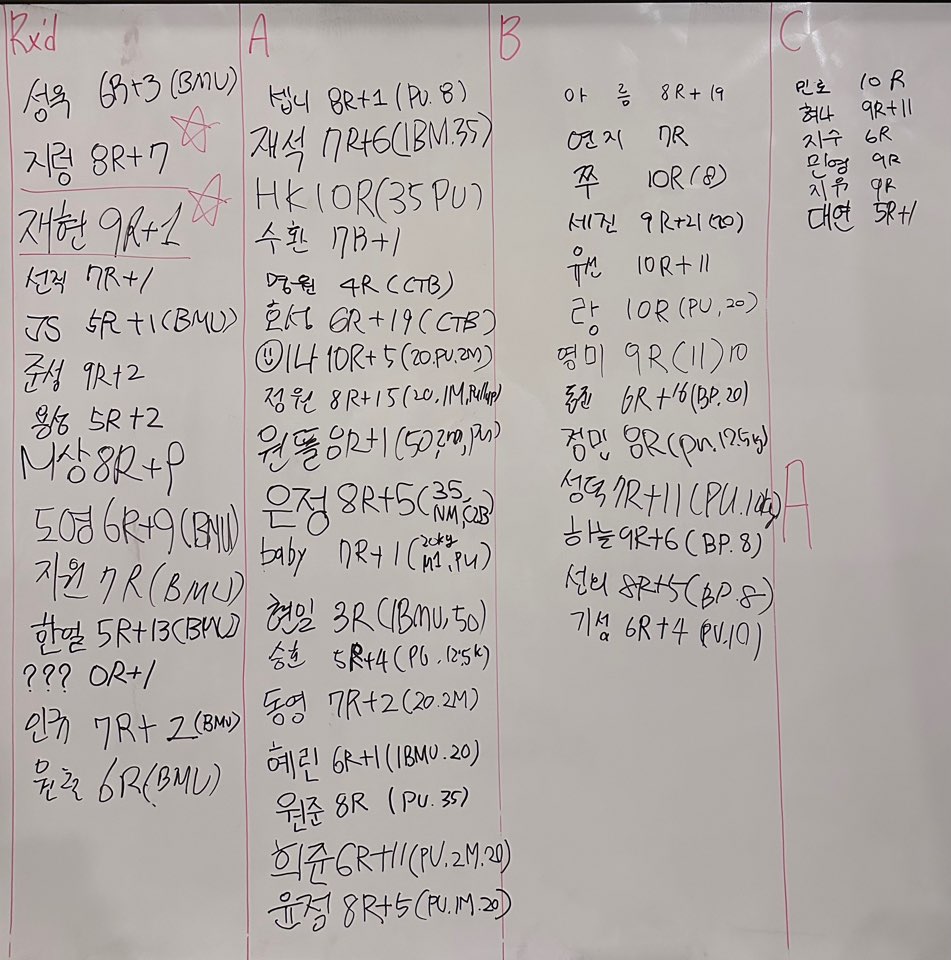 Rx'd
성욱 6R+3 (BMU)
지령 8R+7
재현 9R+1
선직 7R+1
JS 5R+1(BMU)
준성 9R+2
용성 5R+2
M상 8R+9
도영 6R+9(BMU)
지원 7R(BMU)
한얼 5R+13(BMU)
??? 0R+1
인규 7R+2(BMU)
6R(BMU)
A
8R+1 (PU.8)
재석 7R+6(1BM.35)
HK 10R(35PU)
수환 7R+1
명원 4R (CTB)
호성 6R+19(CTB)
이나 10R+5(20.PU.2M)
정원 8R+15(20,1M,Pullup)
원똘 8R+1(50,2m,PU)
은정 8R+5(35,
baby 7R+1(20kg M1,PU)
현일 3R(1BMU,50)
승호 5R+4(PU.12.5k)
동영 7R+2(20.2M)
혜린 6R+1(1BMU.20)
원준 8R (PU.35)
희준 6R+11(PU.2M.20)
윤정 8R+5(PU.1M.20)
B
아름 8R+19
연지 7R
쭈 10R(8)
세진 9R+21
유선 10R+11
랑 10R(PU,20)
영미 9R(11)10
6R+16(BP.20)
정민 8R(PU.12.5kg)
성덕 7R+11(PU.10kg)
하늘 9R+6(BP.8)
선미 8R+5(BP.8)
기섭 6R+4 (PU.10)
C
민호 10R
혜나 9R+11
지수 6R
민영 9R
지유 9R
대연 5R+1
A